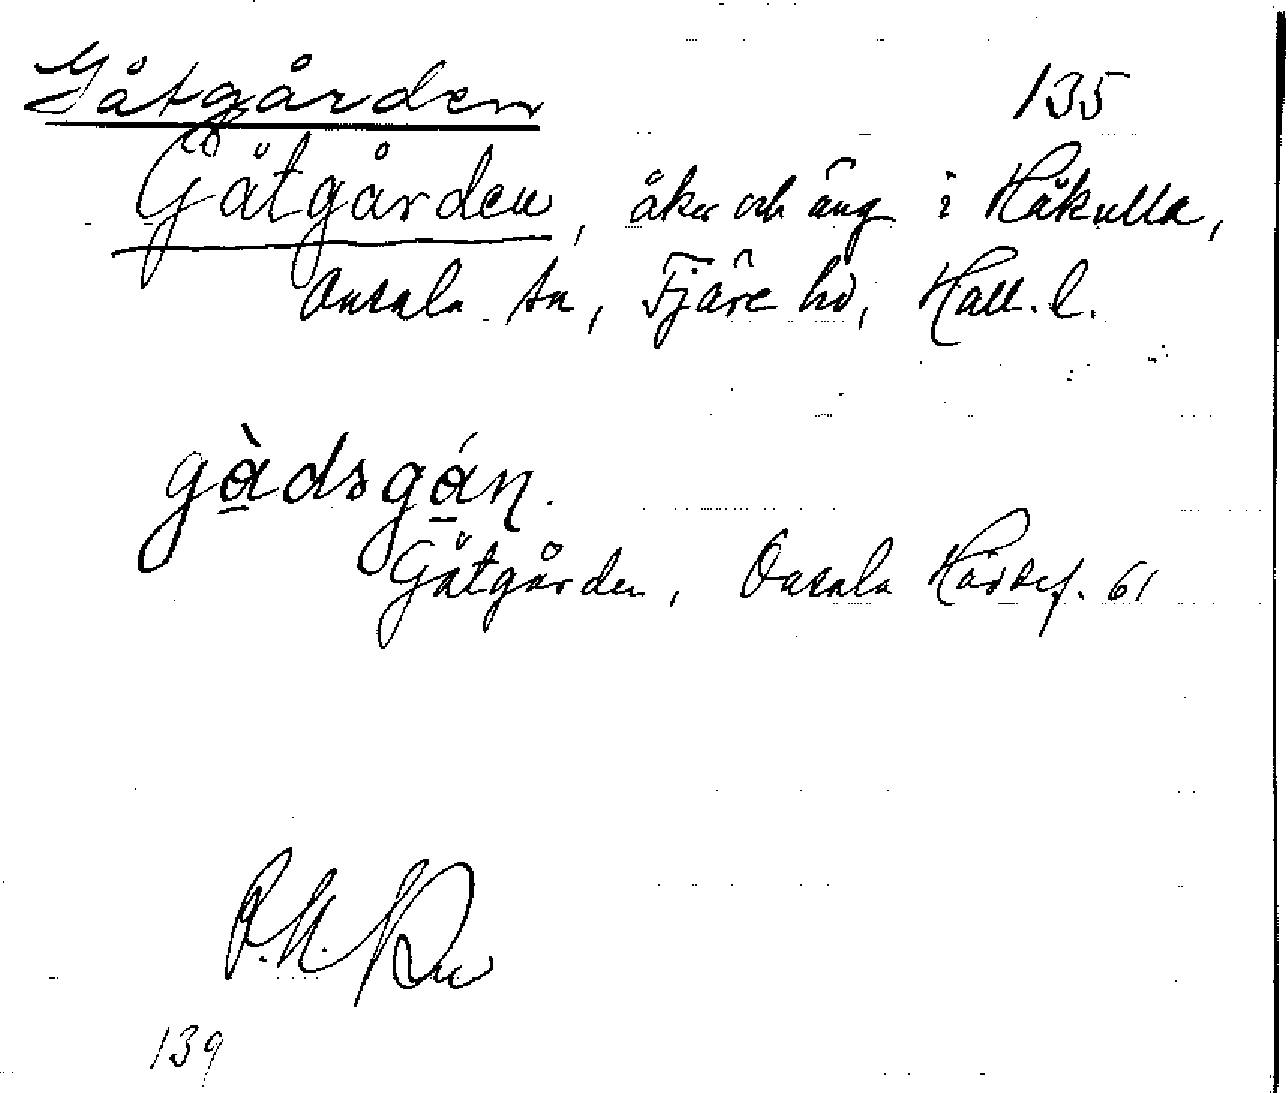 Gåtgården 135
Gåtgården, åker och äng i Håkulla,
Onsala sn, Fjäre hd, Hall. l.
gàdsgán.
Gåtgården, Onsala Hårdef. 61
139